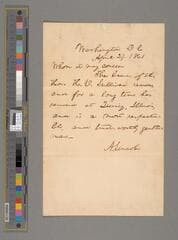 Washington D.C.
April 29, 1861
Whom it may concern
The bearer of this
Thos. W. Sullivan
and for a long time has
resided at Quincy, Illinois,
and is a most respecta-
ble, and trust-worthy gentle-
man—
A. Lincoln